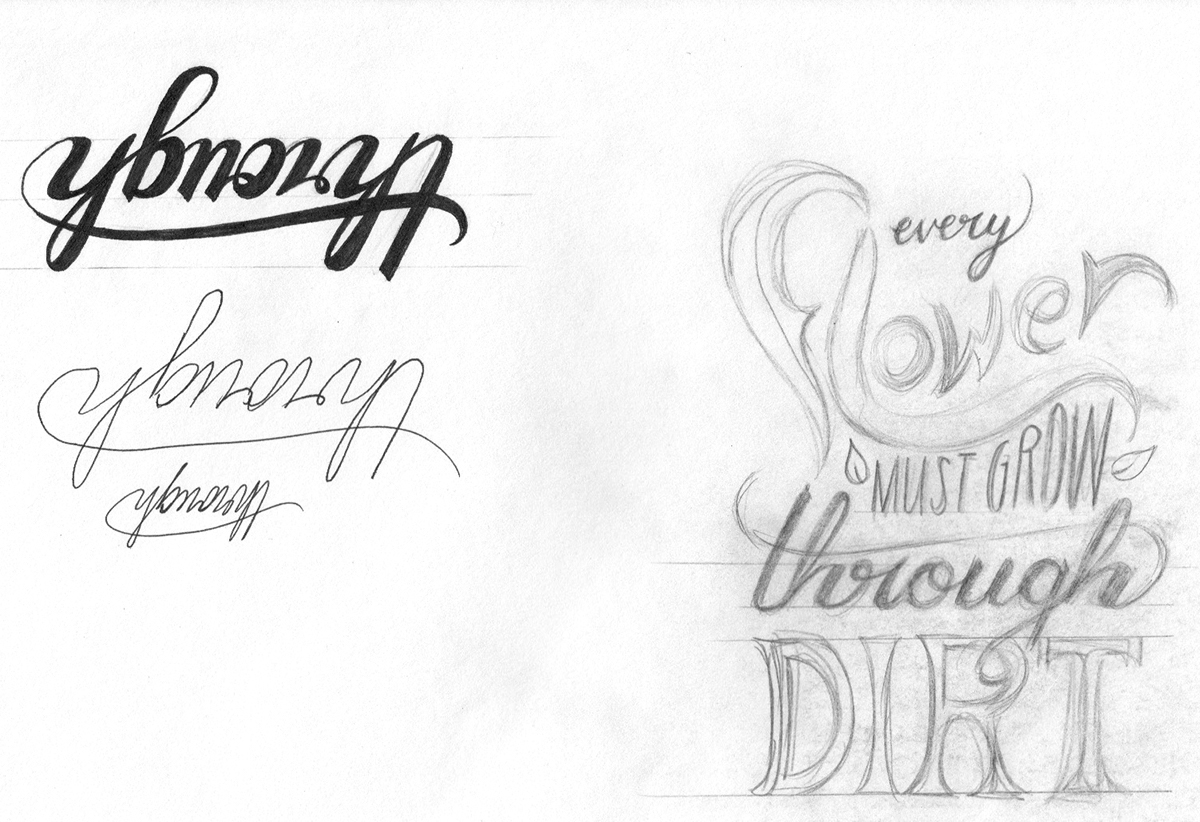 through
through
through
every
flower
MUST GROW
through
DIRT